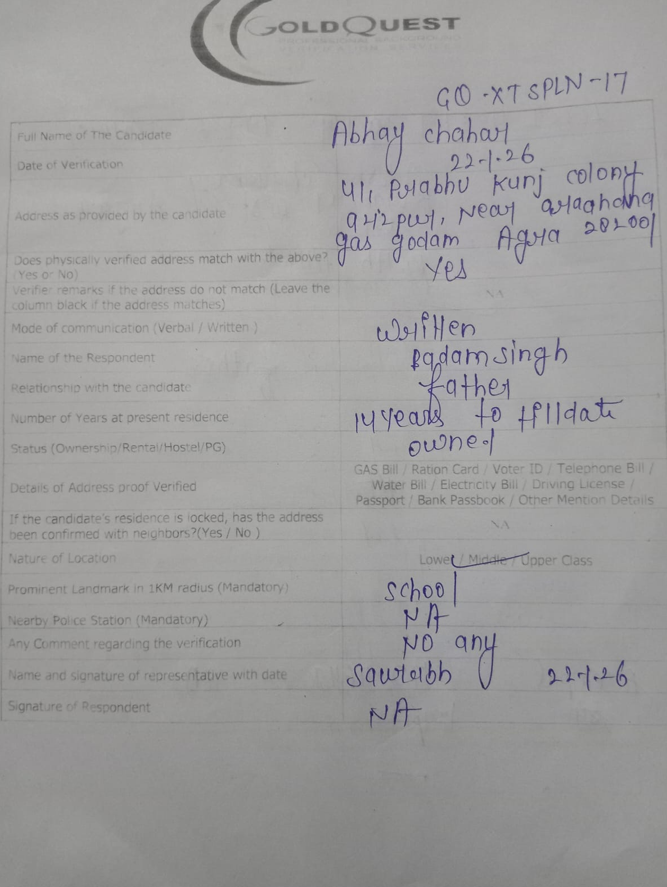 GOLDQUEST
GQ-XTSPLN-17
Full Name of The Candidate Abhay chahar
Date of Verification 22-1-26
Address as provided by the candidate 41, Prabhu Kunj colony
Near
gas godam Agra 282001
Does physically verified address match with the above? (Yes or No) Yes
Verifier remarks if the address do not match (Leave the
column black if the address matches)
Mode of communication (Verbal / Written ) Written
Name of the Respondent Badamsingh
Relationship with the candidate father
Number of Years at present residence 14 years to tilldate
Status (Ownership/Rental/Hostel/PG) owned
GAS Bill / Ration Card / Voter ID / Telephone Bill /
Details of Address proof Verified Water Bill / Electricity Bill / Driving License /
Passport / Bank Passbook / Other Mention Details
If the candidate's residence is locked, has the address
been confirmed with neighbors?(Yes / No ) NA
Nature of Location Lower / Middle / Upper Class
Prominent Landmark in 1KM radius (Mandatory) school
Nearby Police Station (Mandatory) NA
Any Comment regarding the verification NO any
Name and signature of representative with date Saurabh 22-1-26
Signature of Respondent NA